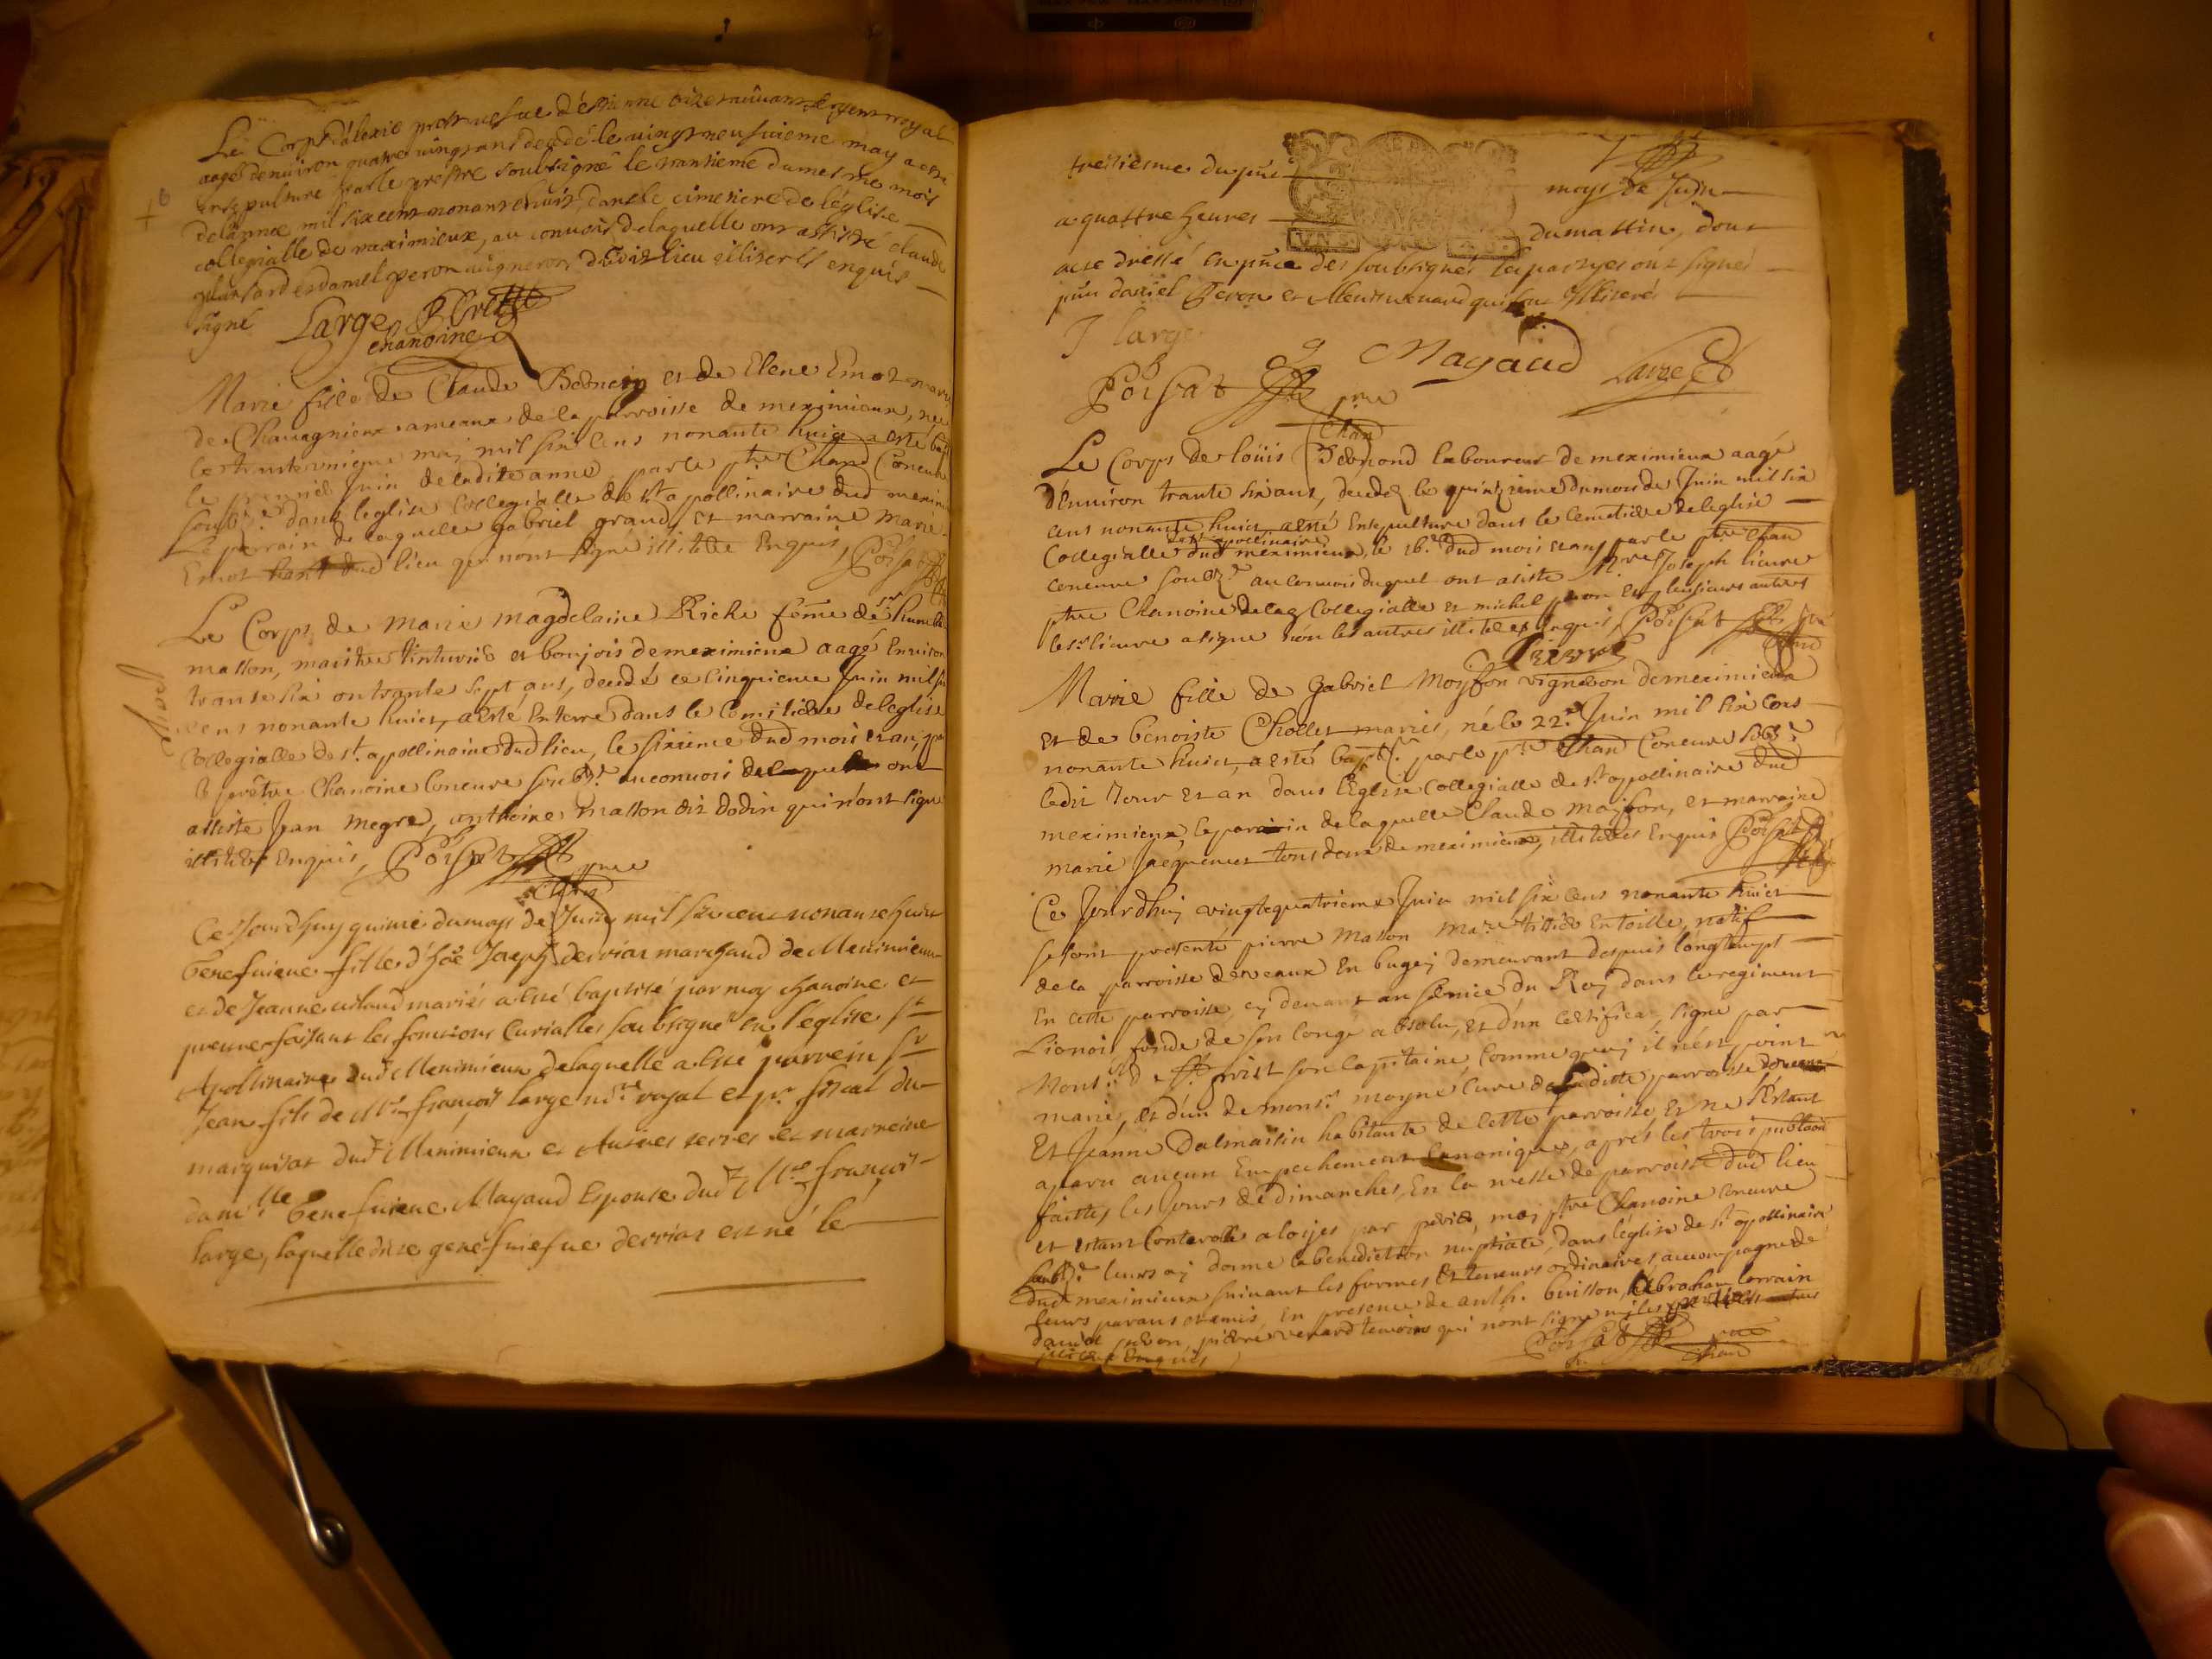 Le Corps d'alexie vefue d'estienne vivant sergent royal
aagé denuiron quatre uingts ans decedé le uingt neufuieme may a esté
ensepulturé par le prestre soubsigné le trantieme du mesme mois
de l'annéé mil six cent nonante huit, dans le cimetiere de l'église
collegialle de meximieux, au conuois de laquelle ont assisté claude
et daniel peron uignerons dudit lieu illiterés enquis
signé Large
chanoine
Marie fille de Claude et de Elene Emot mariés
de Chauagnieux ameaux de la parroisse de meximieux, née
le trante unieme maj mil six cens nonante huict a esté bap
le premier Juin de ladite anneé, par le ptre Chand Concuré
soubz.né dans leglise Collegialle de st apollinaire dud mexim
Le parrain de laquelle gabriel grand, et marraine Marie
Emot dud lieu qui nont signé illiterés Enquis, Poisat
Le Corps de marie magdelaine Riche feme de sr humb
masson, maistre tinturié et bourjois de meximieux aagé Enuiron
trante six ou trante sept ans, decedé le cinquieme Juin mil six
cens nonante huict, a esté Enterré dans le Cemitiere de leglise
Collegialle de st. apollinaire dud lieu, le sixieme dud mois et an, par
le prêtre Chanoine Concuré soubz.né au conuois de laquelle ont
assisté Jean megre, anthoine masson dit dodin qui n'ont signé
illiterés Enquis, Poisat ptre
Chand
Ce Jourdhuy quinze du moys de Juin mil six cent nonante huict
Genefuieue fille d'hon Joseph derrias marchand de Meximieux
et de Jeanne mariés a esté baptisé par moy chanoine et
preuire faisant les fonctions Curialles soubsigné en l'eglise St
Apollinaire dud Meximieux de laquelle a esté parrein Sr
Jean fils de Me françois large nore royal et pr. fiscal du
marquisat dud Meximieux et Autres terres et marreine
damlle Genefuieue Mayaud Espouse dud Me françois
large, laquelle dite genefuiefue derrias est né le
treiziesme du pnt moys de Juin
a quattre heures du mattin, dont
acte dressé en pnce des soubsignés les partyes ont signés
pnt daniel Peron et qui sont illiterés
J large
Poisat Mayaud Large
ptre
Chan
Le Corps de loüis Bedmond laboureur de meximieux aagé
d'enuiron trante six ans, decedé le quinzieme du mois de Juin mil six
cens nonante huict, a esté Ensepulturé dans le Cemetiere de leglise
st apollinaire
Collegialle dud meximieux, le 16.e dud mois et an, par le ptre Chan
concuré soubz.né au conuois duquel ont asisté Mre Joseph lieure
ptre Chanoine de lad Collegialle et michel peron et plusieurs autres
le sr. lieure a signé non les autres illiterés enquis, Poisat ptre
Chand
Lieure
Marie fille de Gabriel Moyson vigneron de meximieux
et de benoiste Chollet mariés, né le 22e Juin mil six cens
nonante huict, a esté baptisé par le ptre Chand Concuré sobz.né
ledit Jour et an dans l'Eglise Collegialle de st apollinaire dud
meximieux, le parain de laquelle Claude Moyson, et marraine
marie Jaquemet tous deux de meximieux, illiterés Enquis Poisat
Ce Jourdhuj vingtequatrieme Juin mil six cens nonante huict
se sont presenté pierre Masson Mare tissier En toille, natif
de la parroisse de veaux En bugej demeurant despuis longtempt
En cette parroisse, cj deuant au seruice du Roj dans le regiment
Lionois, fondé de son congé absolu, et d'un Certificat, signé par
Mons.r de son Capitaine, Comme quoj il nest point
marié, et d'un de mons.r moyne Curé de ladite parroisse
Et Jeanne Dalmassin habitante de cette parroisse, Et ne s'estant
aparu aucun Empechement Canonique, aprés les trois publications
faittes les Jours de dimanches, En la messe de parroisse dud lieu
et estant Controllé a loijes par perier, moj ptre Chanoine Concuré
soubz.né leurs aj donné la benediction nuptiale, dans l'église de st apollinaire
dud meximieux suiuant les formes Et teneurs ordinaires, accompagnés de
leurs parans et amis, En presence de anth. buisson, abraham lorrain
daniel peron, pierre venard temoins qui nont signé nj les parties
illiterés Enquis Poisat ptre
Chand